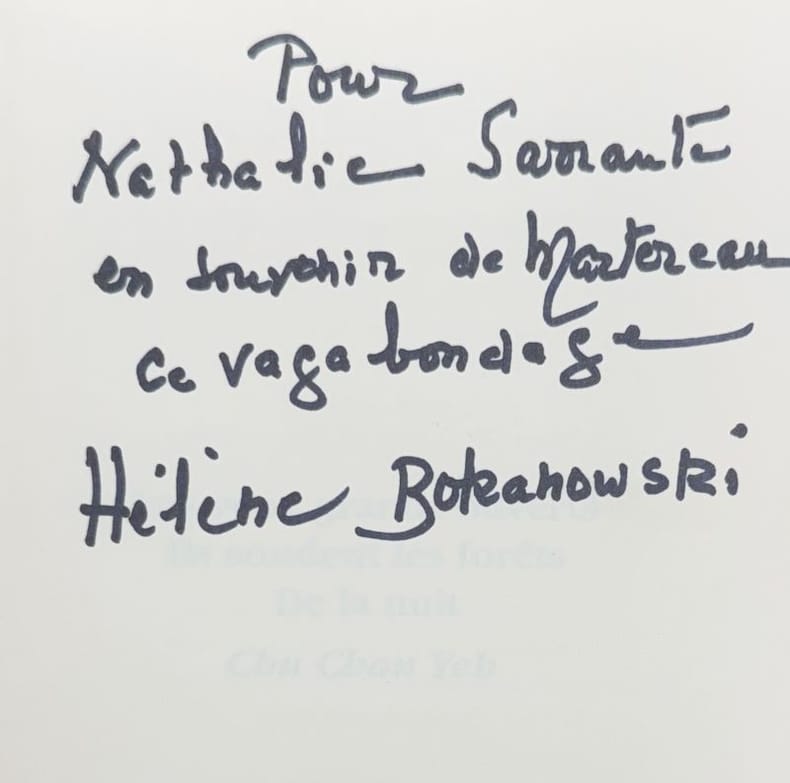 Pour
Nathalie Sarraute
en souvenir de Martereau
ce vagabondage
Hélène Bokanowski
Ils sondent les forêts
De la nuit
Chu Chan Yeh